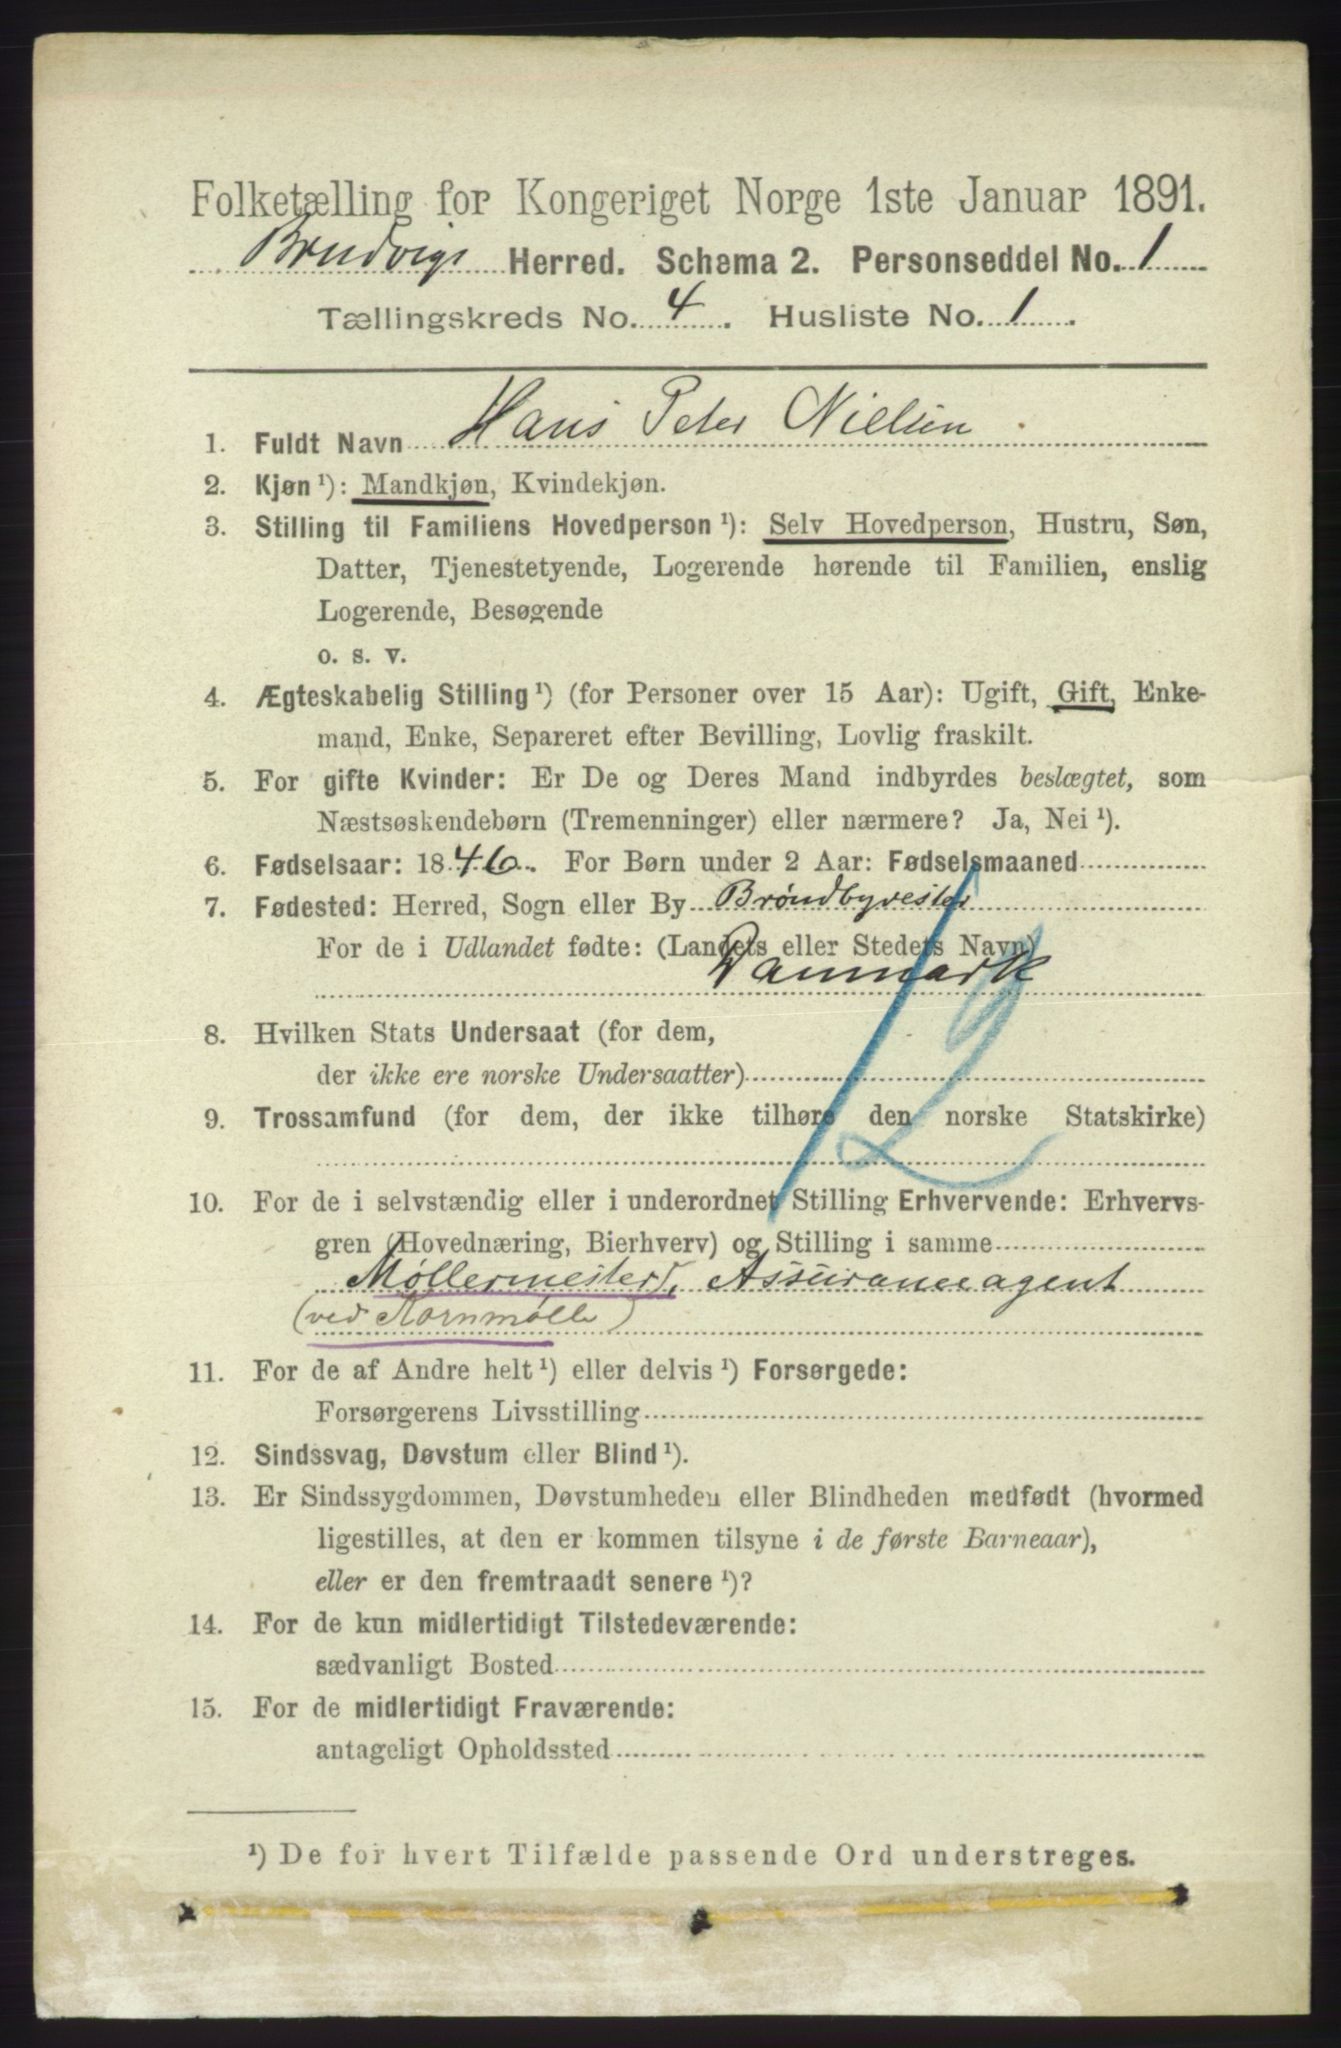 Folketælling for Kongeriget Norge 1ste Januar 1891.
Bruvigs Herred. Schema 2. Personseddel No. 1
Tællingskreds No. 4. Husliste No. 1.
1. Fuldt Navn Hans Peter Nielsen
2. Kjøn ¹): Mandkjøn, Kvindekjøn.
3. Stilling til Familiens Hovedperson ¹): Selv Hovedperson, Hustru, Søn,
Datter, Tjenestetyende, Logerende hørende til Familien, enslig
Logerende, Besøgende
o. s. v.
4. Ægteskabelig Stilling ¹) (for Personer over 15 Aar): Ugift, Gift, Enke-
mand, Enke, Separeret efter Bevilling, Lovlig fraskilt.
5. For gifte Kvinder: Er De og Deres Mand indbyrdes beslægtet, som
Næstsøskendebørn (Tremenninger) eller nærmere? Ja, Nei ¹).
6. Fødselsaar: 1846. For Børn under 2 Aar: Fødselsmaaned
7. Fødested: Herred, Sogn eller By Brøndbyvester
For de i Udlandet fødte: (Landets eller Stedets Navn)
Danmark
8. Hvilken Stats Undersaat (for dem,
der ikke ere norske Undersaatter)
9. Trossamfund (for dem, der ikke tilhøre den norske Statskirke)
10. For de i selvstændig eller i underordnet Stilling Erhvervende: Erhvervs-
gren (Hovednæring, Bierhverv) og Stilling i samme
Møllermester, Assuranceagent
(ved Kornmølle)
11. For de af Andre helt ¹) eller delvis ¹) Forsørgede:
Forsørgerens Livsstilling
12. Sindssvag, Døvstum eller Blind ¹).
13. Er Sindssygdommen, Døvstumheden eller Blindheden medfødt (hvormed
ligestilles, at den er kommen tilsyne i de første Barneaar),
eller er den fremtraadt senere ¹)?
14. For de kun midlertidigt Tilstedeværende:
sædvanligt Bosted
15. For de midlertidigt Fraværende:
antageligt Opholdssted
¹) De for hvert Tilfælde passende Ord understreges.